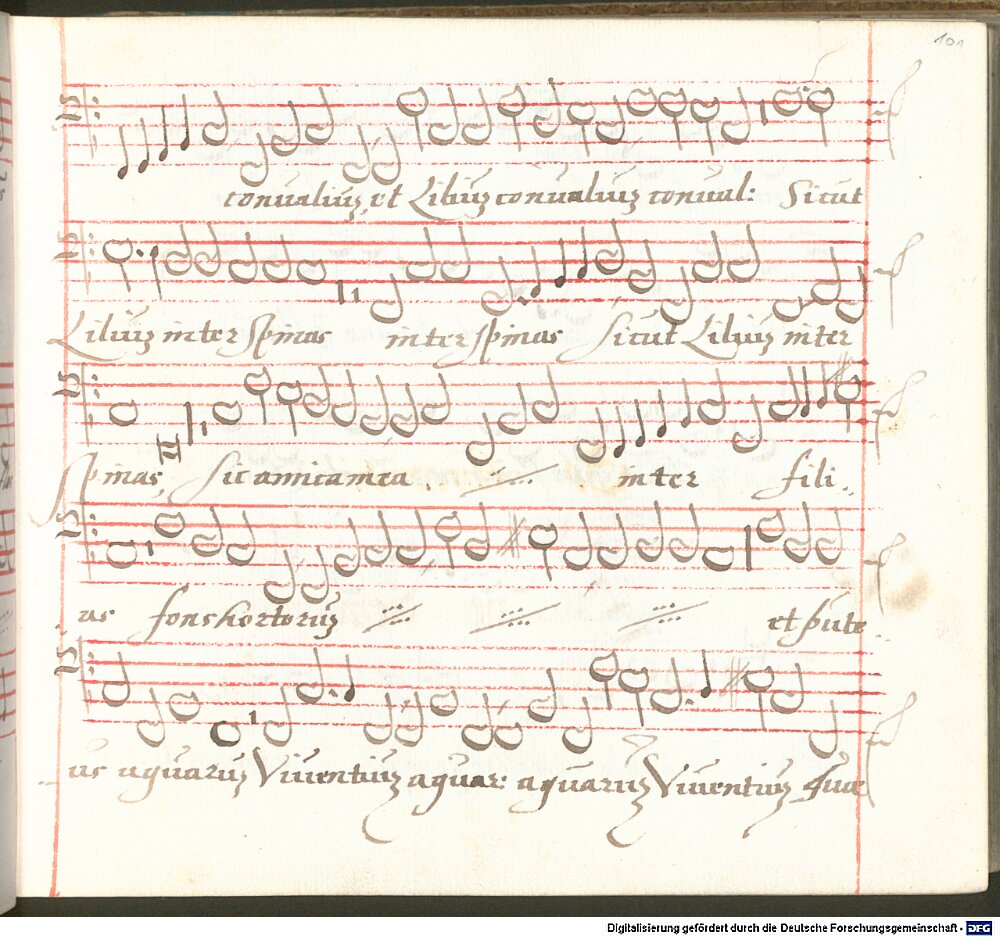 101
conualiuʒ et Liliuʒ conualiuʒ conual: Sicut
Liliuʒ inter Spinas inter spinas Sicut Liliuʒ inter
Spinas, Sic amica mea inter fili
us fons hortoruʒ et pute
us aquaruʒ Viuentiuʒ aquar: aquaruʒ Viuentiuʒ Quæ
Digitalisierung gefördert durch die Deutsche Forschungsgemeinschaft - DFG